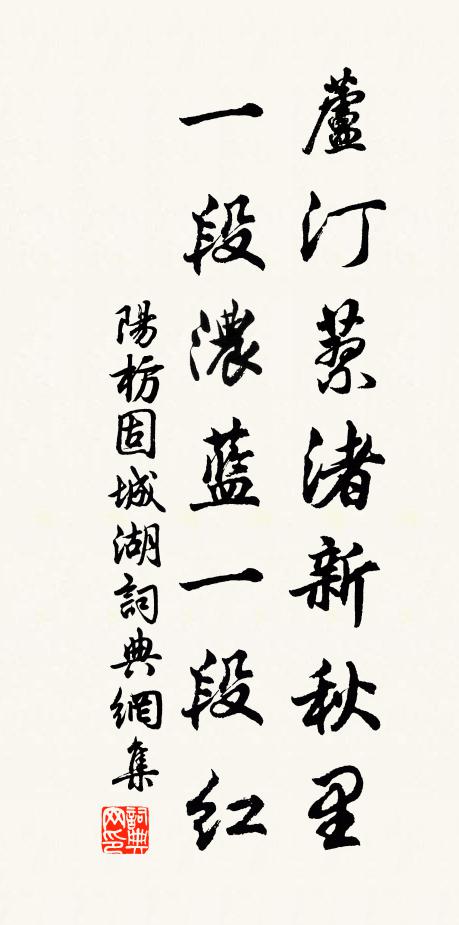 蘆汀蓼渚新秋里
一段濃藍一段紅
陽枋固城湖詞典網集
詞典
网印